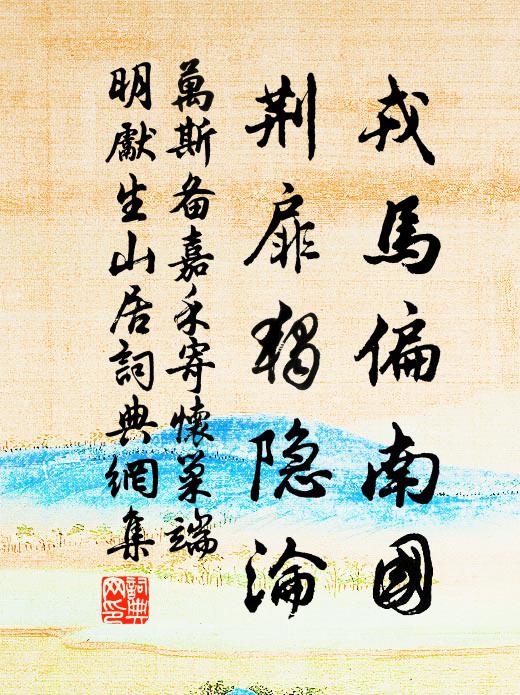 戎馬偏南國
荆扉獨隐淪
萬斯备嘉禾寄懷葉端
明獻生山居詞典網集
詞典